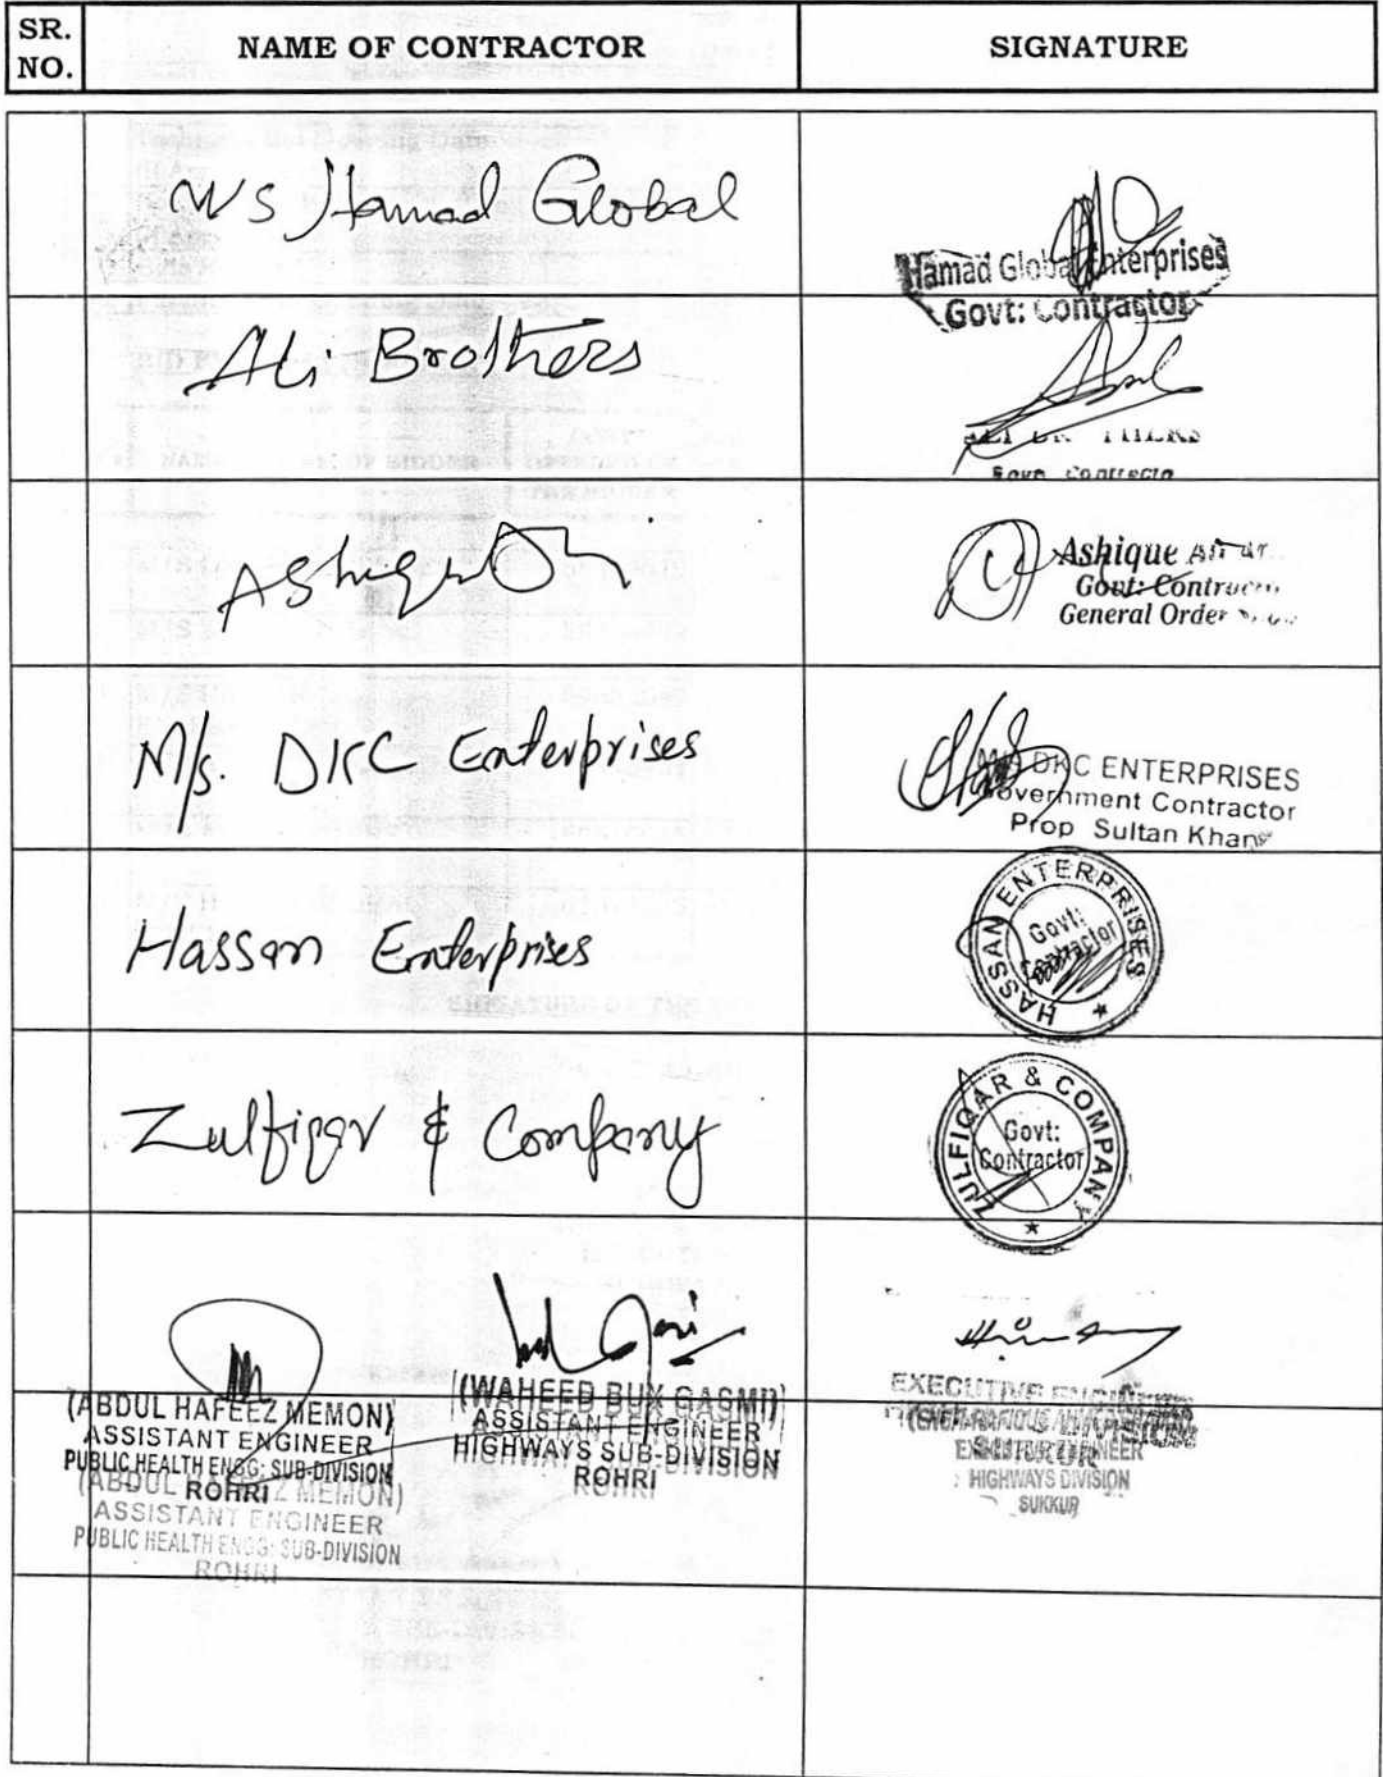 SR. NO.
NAME OF CONTRACTOR
SIGNATURE
M/S Hamad Global
Hamad Global Enterprises
Govt: Contractor
Ali Brothers
Ashique Ali
Ashique Ali
Govt: Contractor
General Order
M/s. DKC Enterprises
M/S DKC ENTERPRISES
Government Contractor
Prop Sultan Khan
Hassan Enterprises
HASSAN ENTERPRISES
Govt:
Contractor
Zulfiqar & Company
ZULFIQAR & COMPANY
Govt:
Contractor
(ABDUL HAFEEZ MEMON)
ASSISTANT ENGINEER
PUBLIC HEALTH ENGG: SUB-DIVISION
ROHRI
(ABDUL HAFEEZ MEMON)
ASSISTANT ENGINEER
PUBLIC HEALTH ENGG: SUB-DIVISION
ROHRI
(WAHEED BUX QASMI)
ASSISTANT ENGINEER
HIGHWAYS SUB-DIVISION
ROHRI
EXECUTIVE ENGINEER
HIGHWAYS DIVISION
SUKKUR